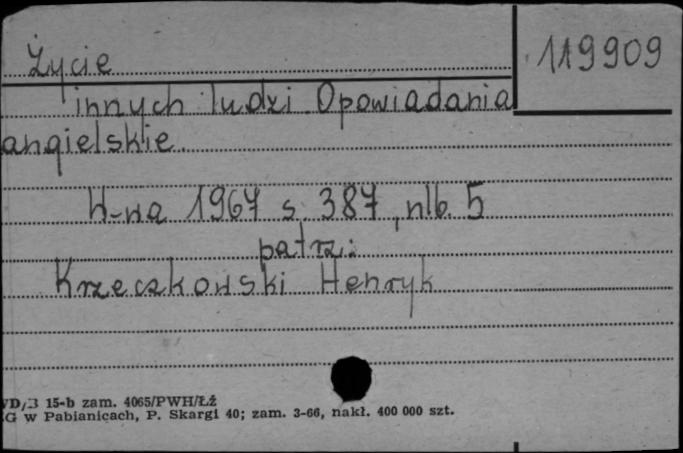 Życie
119909
innych ludzi. Opowiadania
angielskie.
W-wa 1967 s. 387, nlb. 5
patrz:
Krzeczkowski Henryk
15-b zam. 4065/PWH/ŁŹ
w Pabianicach, P. Skargi 40; zam. 3-66, nakł. 400 000 szt.